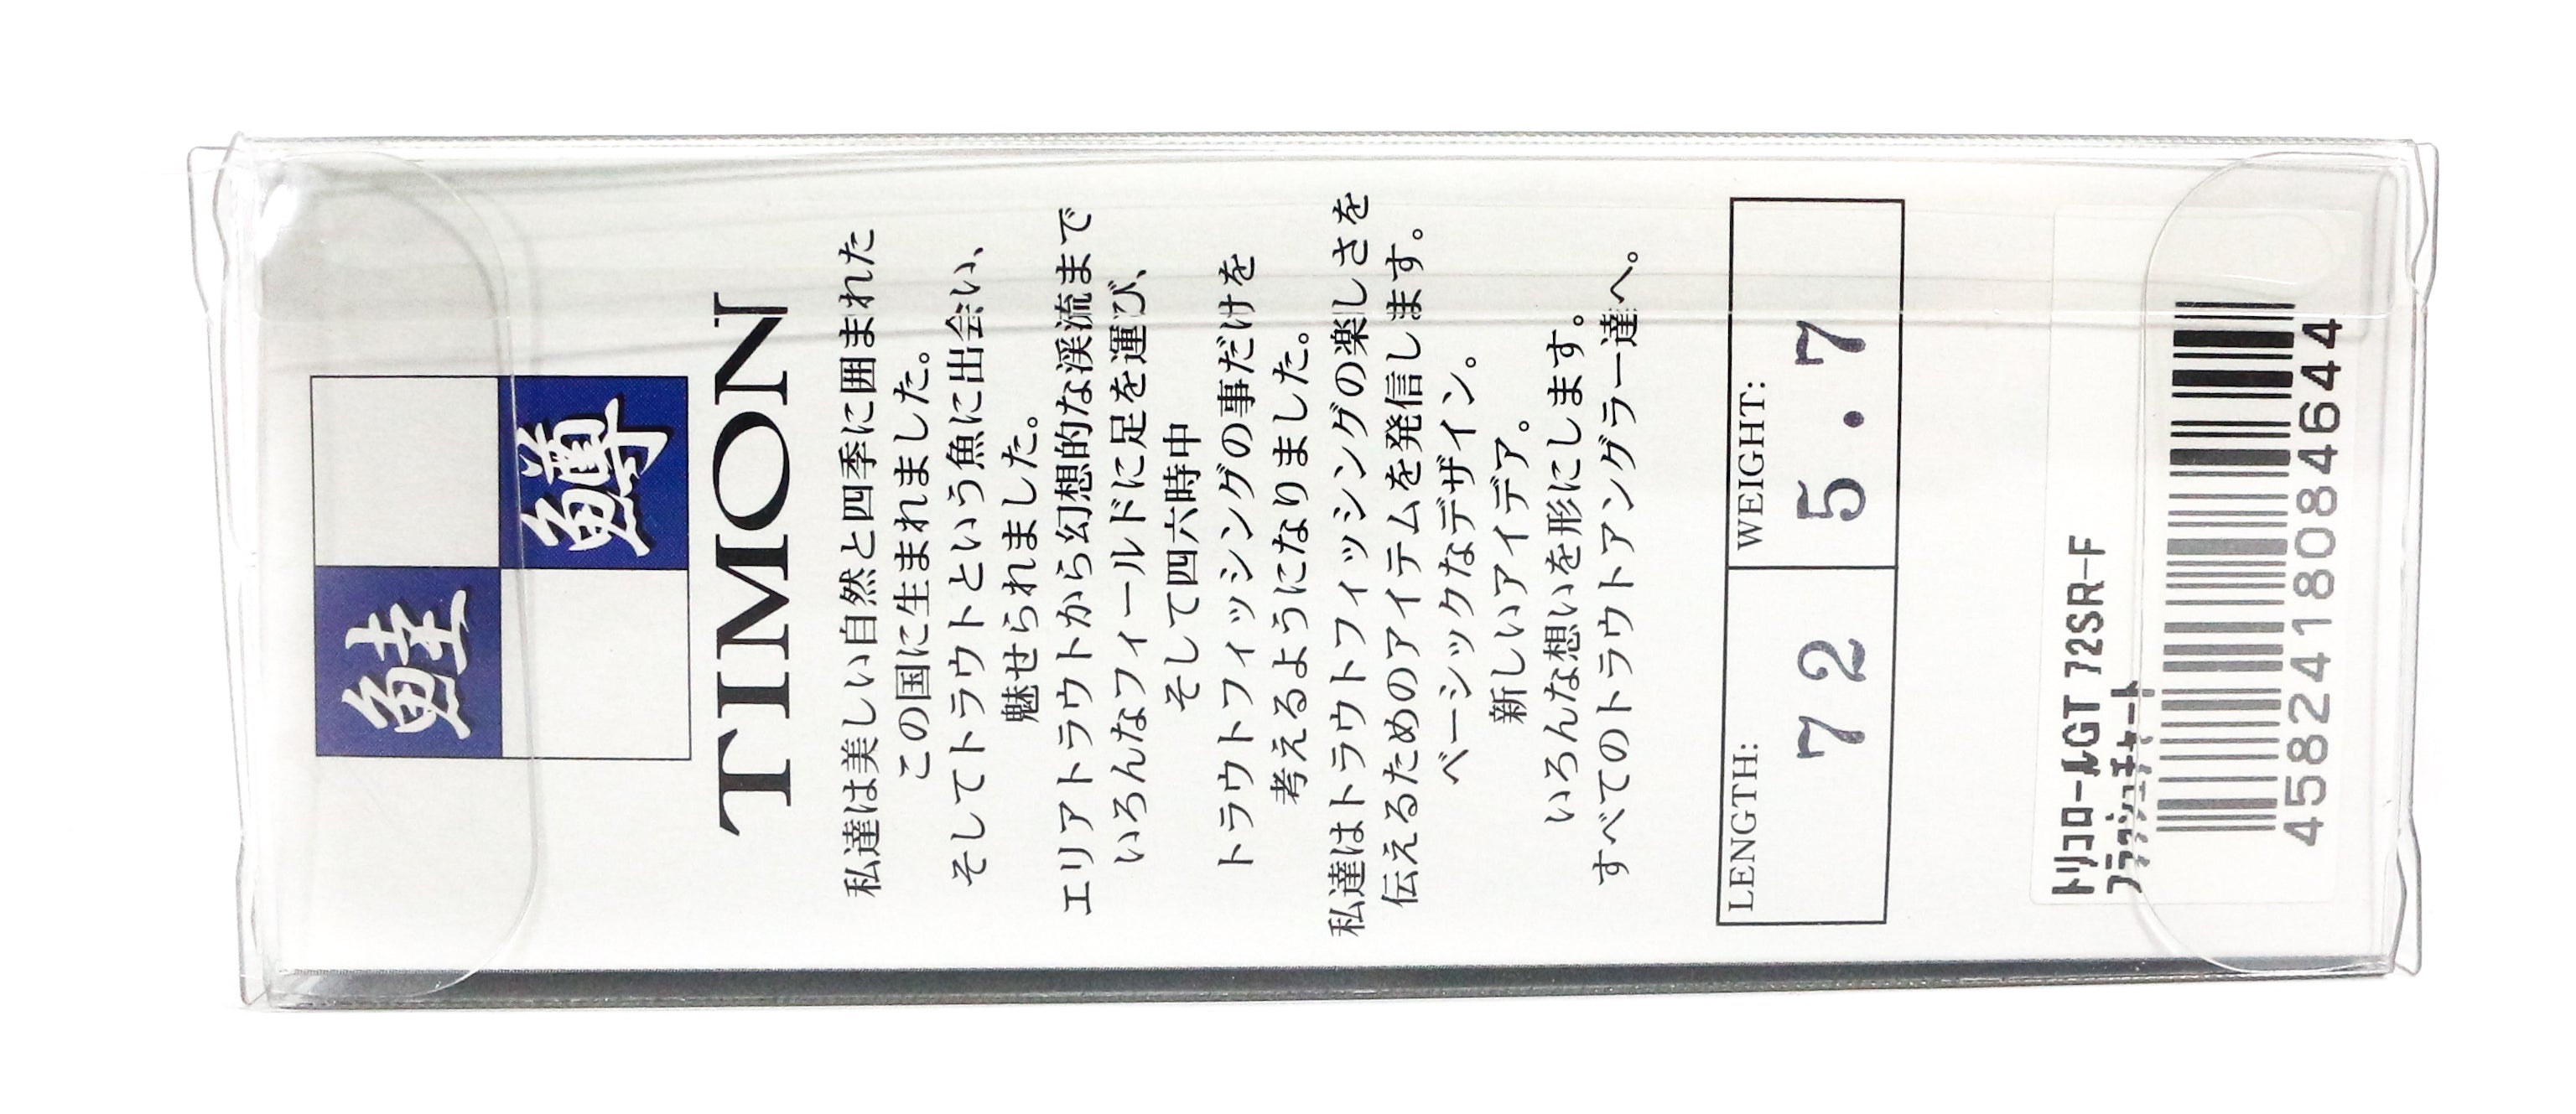 鮭
鱒
TIMON
私達は美しい自然と四季に囲まれた
この国に生まれました。
そしてトラウトという魚に出会い、
魅せられました。
エリアトラウトから幻想的な渓流まで
いろんなフィールドに足を運び、
そして四六時中
トラウトフィッシングの事だけを
考えるようになりました。
私達はトラウトフィッシングの楽しさを
伝えるためのアイテムを発信します。
ベーシックなデザイン。
新しいアイデア。
いろんな想いを形にします。
すべてのトラウトアングラー達へ。
LENGTH: WEIGHT:
72 5.7
トリコロールGT 72SR-F
フラッシュチャート
4582418084644